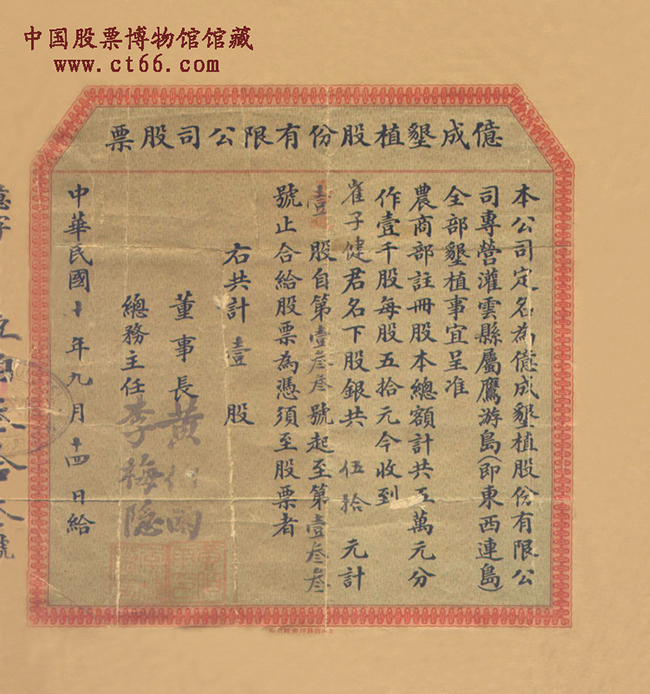 中国股票博物馆馆藏
www.ct66.com
億成墾植股份有限公司股票
本公司定名為億成墾植股份有限公
司專營灌雲縣屬鷹游島(即東西連島)
全部墾植事宜呈准
農商部註冊股本總額計共五萬元分
作壹千股每股五拾元今收到
崔子健君名下股銀共伍拾元計
壹股自第壹叁叁號起至第壹叁叁
號止合給股票為憑須至股票者
右共計壹股
董事長黃 雨
總務主任李梅隱
中華民國十年九月十四日給